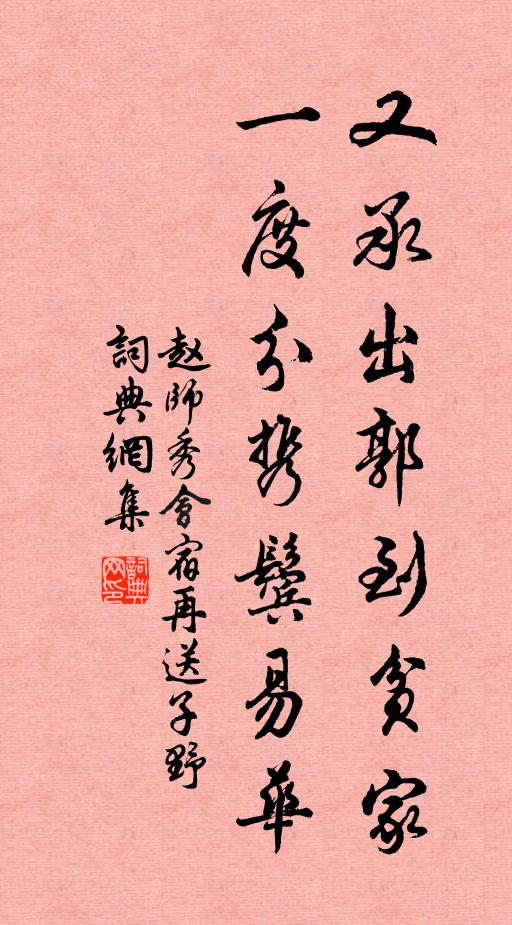 又承出郭到贫家
一度分携鬓易华
赵師秀會宿再送子野
詞典網集
詞典网印